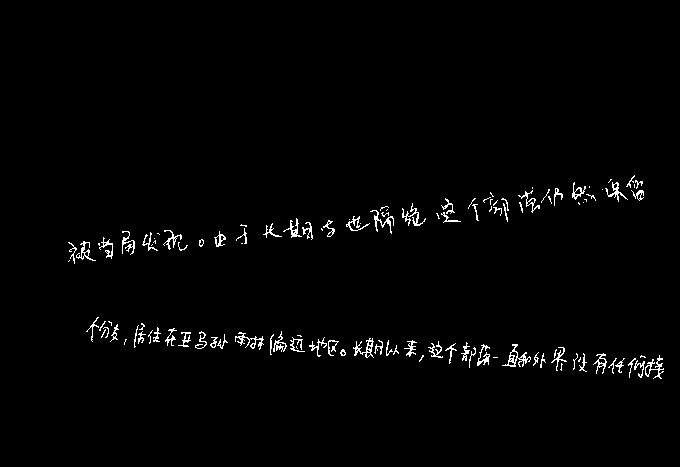 被当局发现。由于长期与世隔绝这个部落仍然保留
个分支,居住在亚马孙雨林偏远地区。长期以来,这个部落一直和外界没有任何接